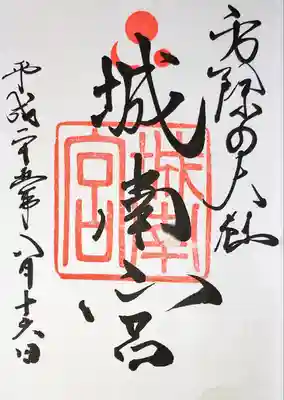 方除の大社
城南宮
城南宮
平成二十五年八月十六日